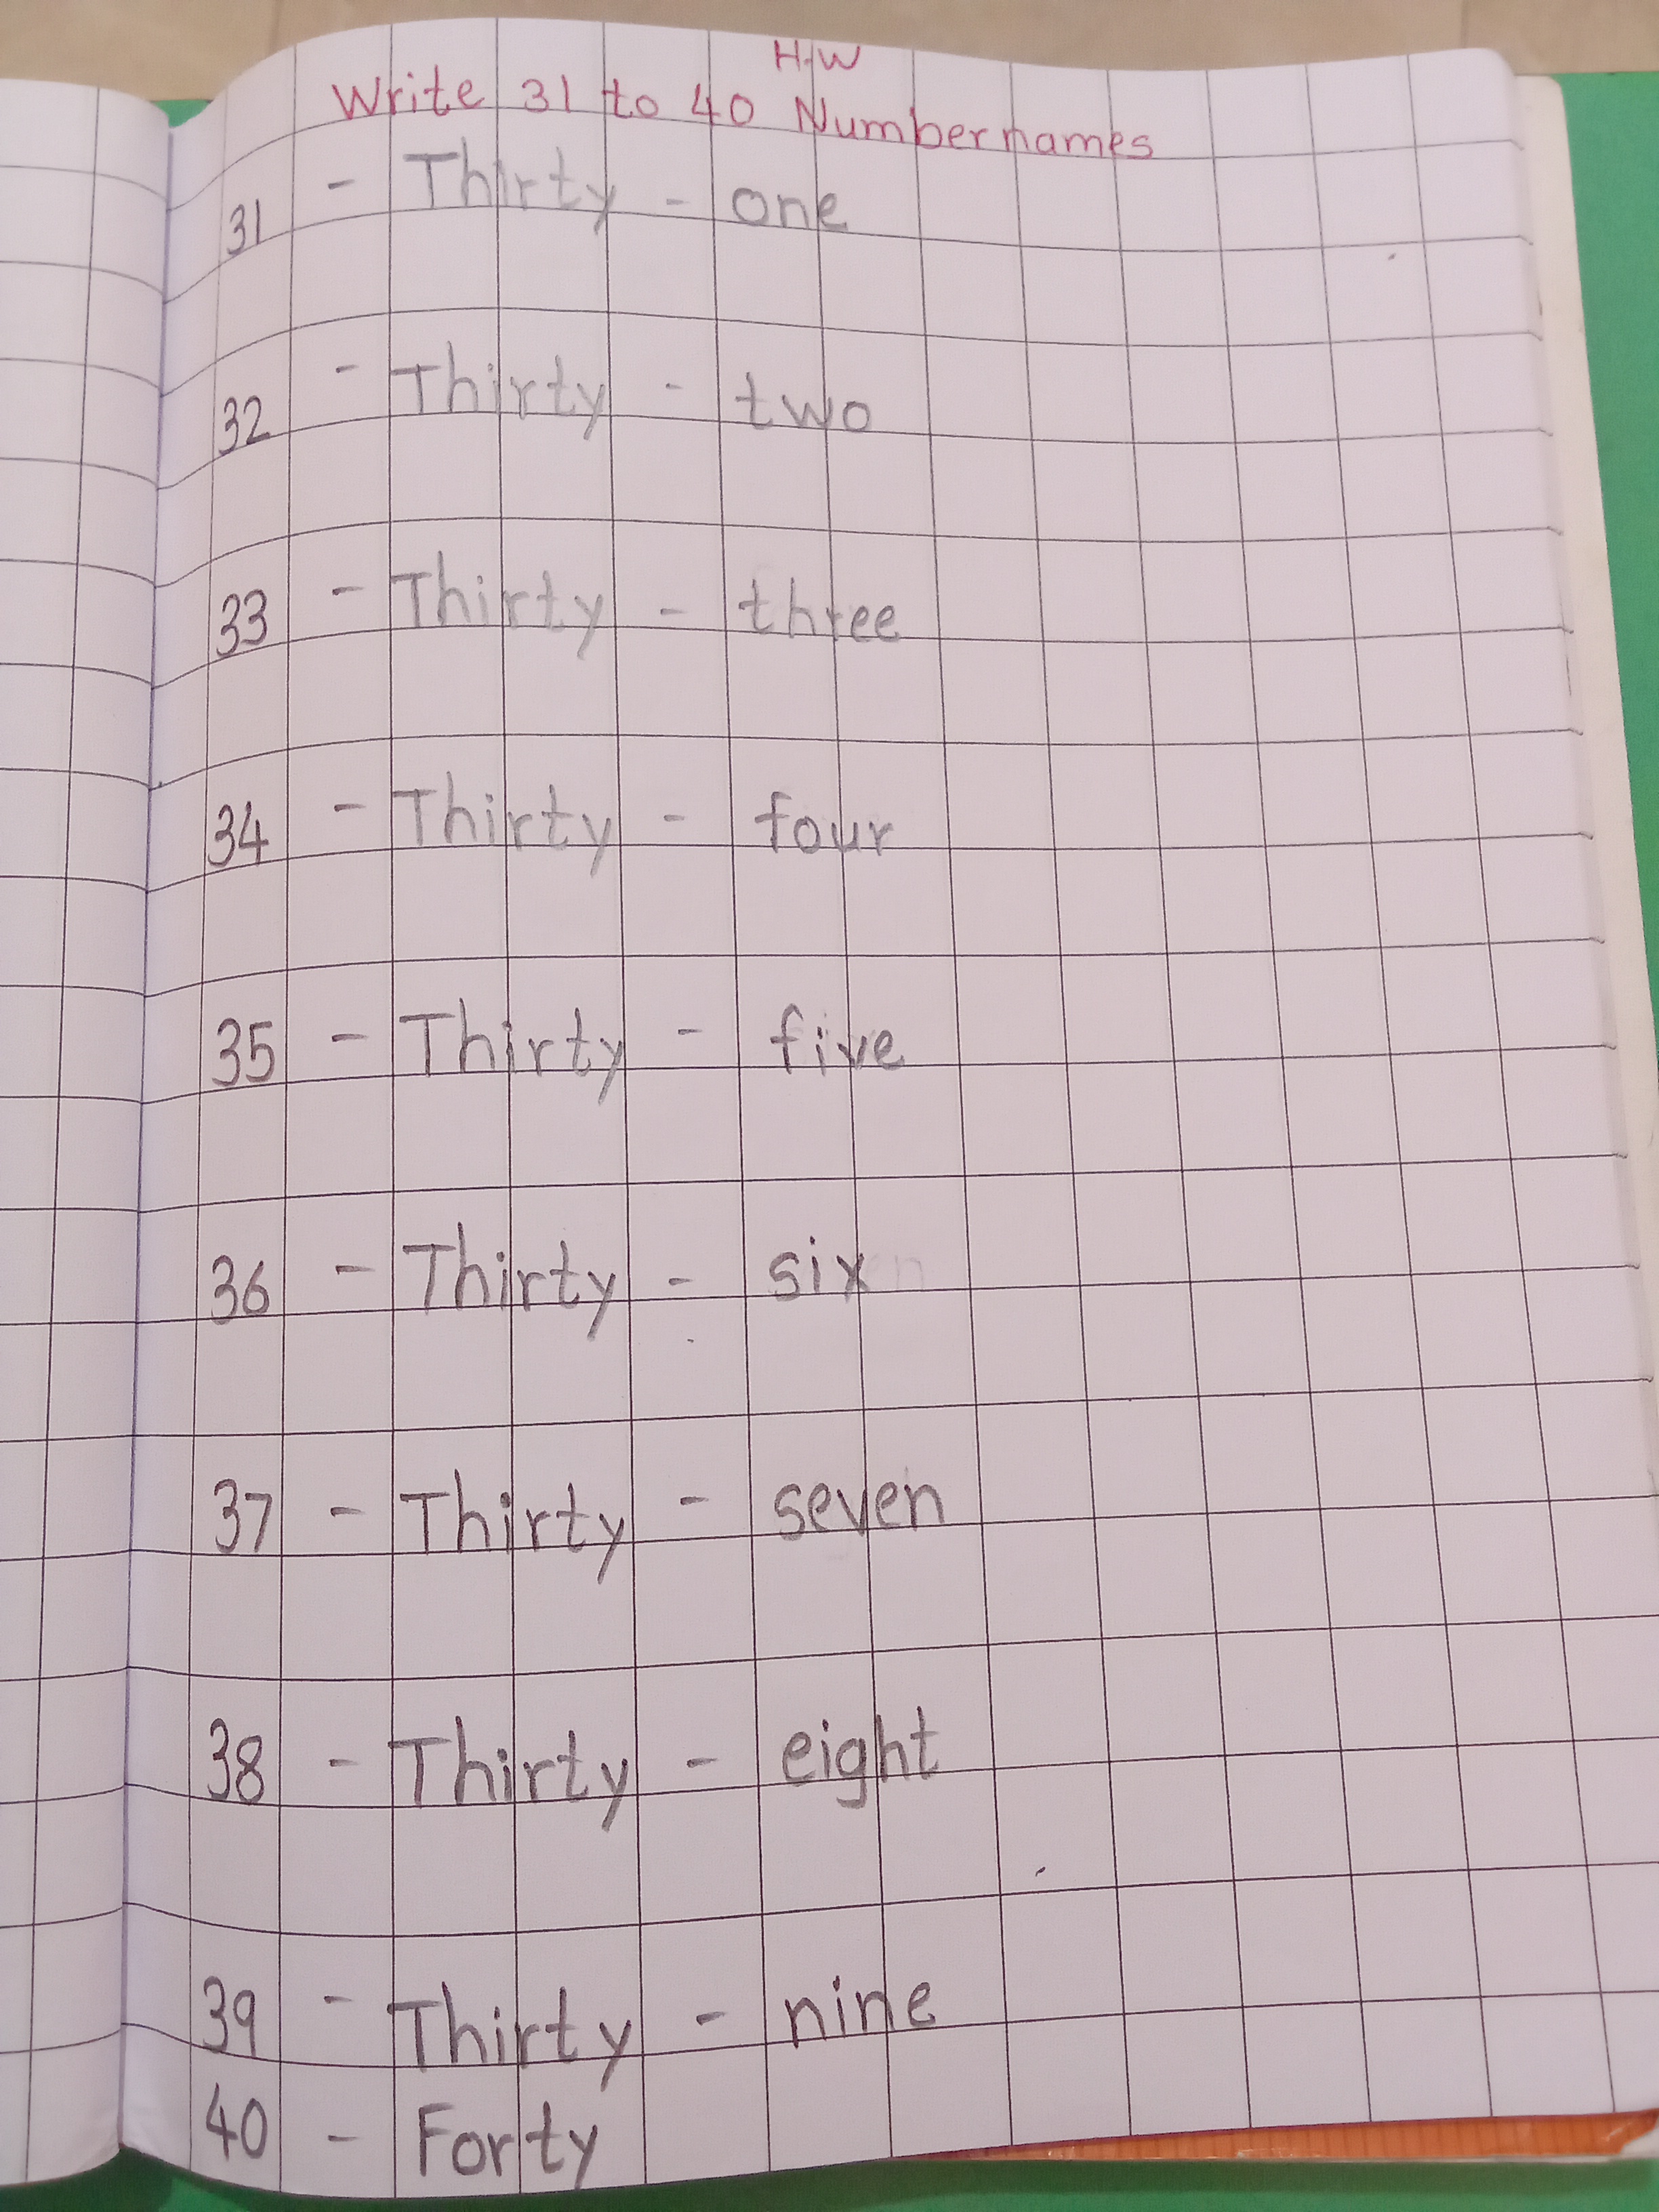 H.W
Write 31 to 40 Number names
31 - Thirty - one
32 - Thirty - two
33 - Thirty - three
34 - Thirty - four
35 - Thirty - five
36 - Thirty - six
37 - Thirty - seven
38 - Thirty - eight
39 - Thirty - nine
40 - Forty